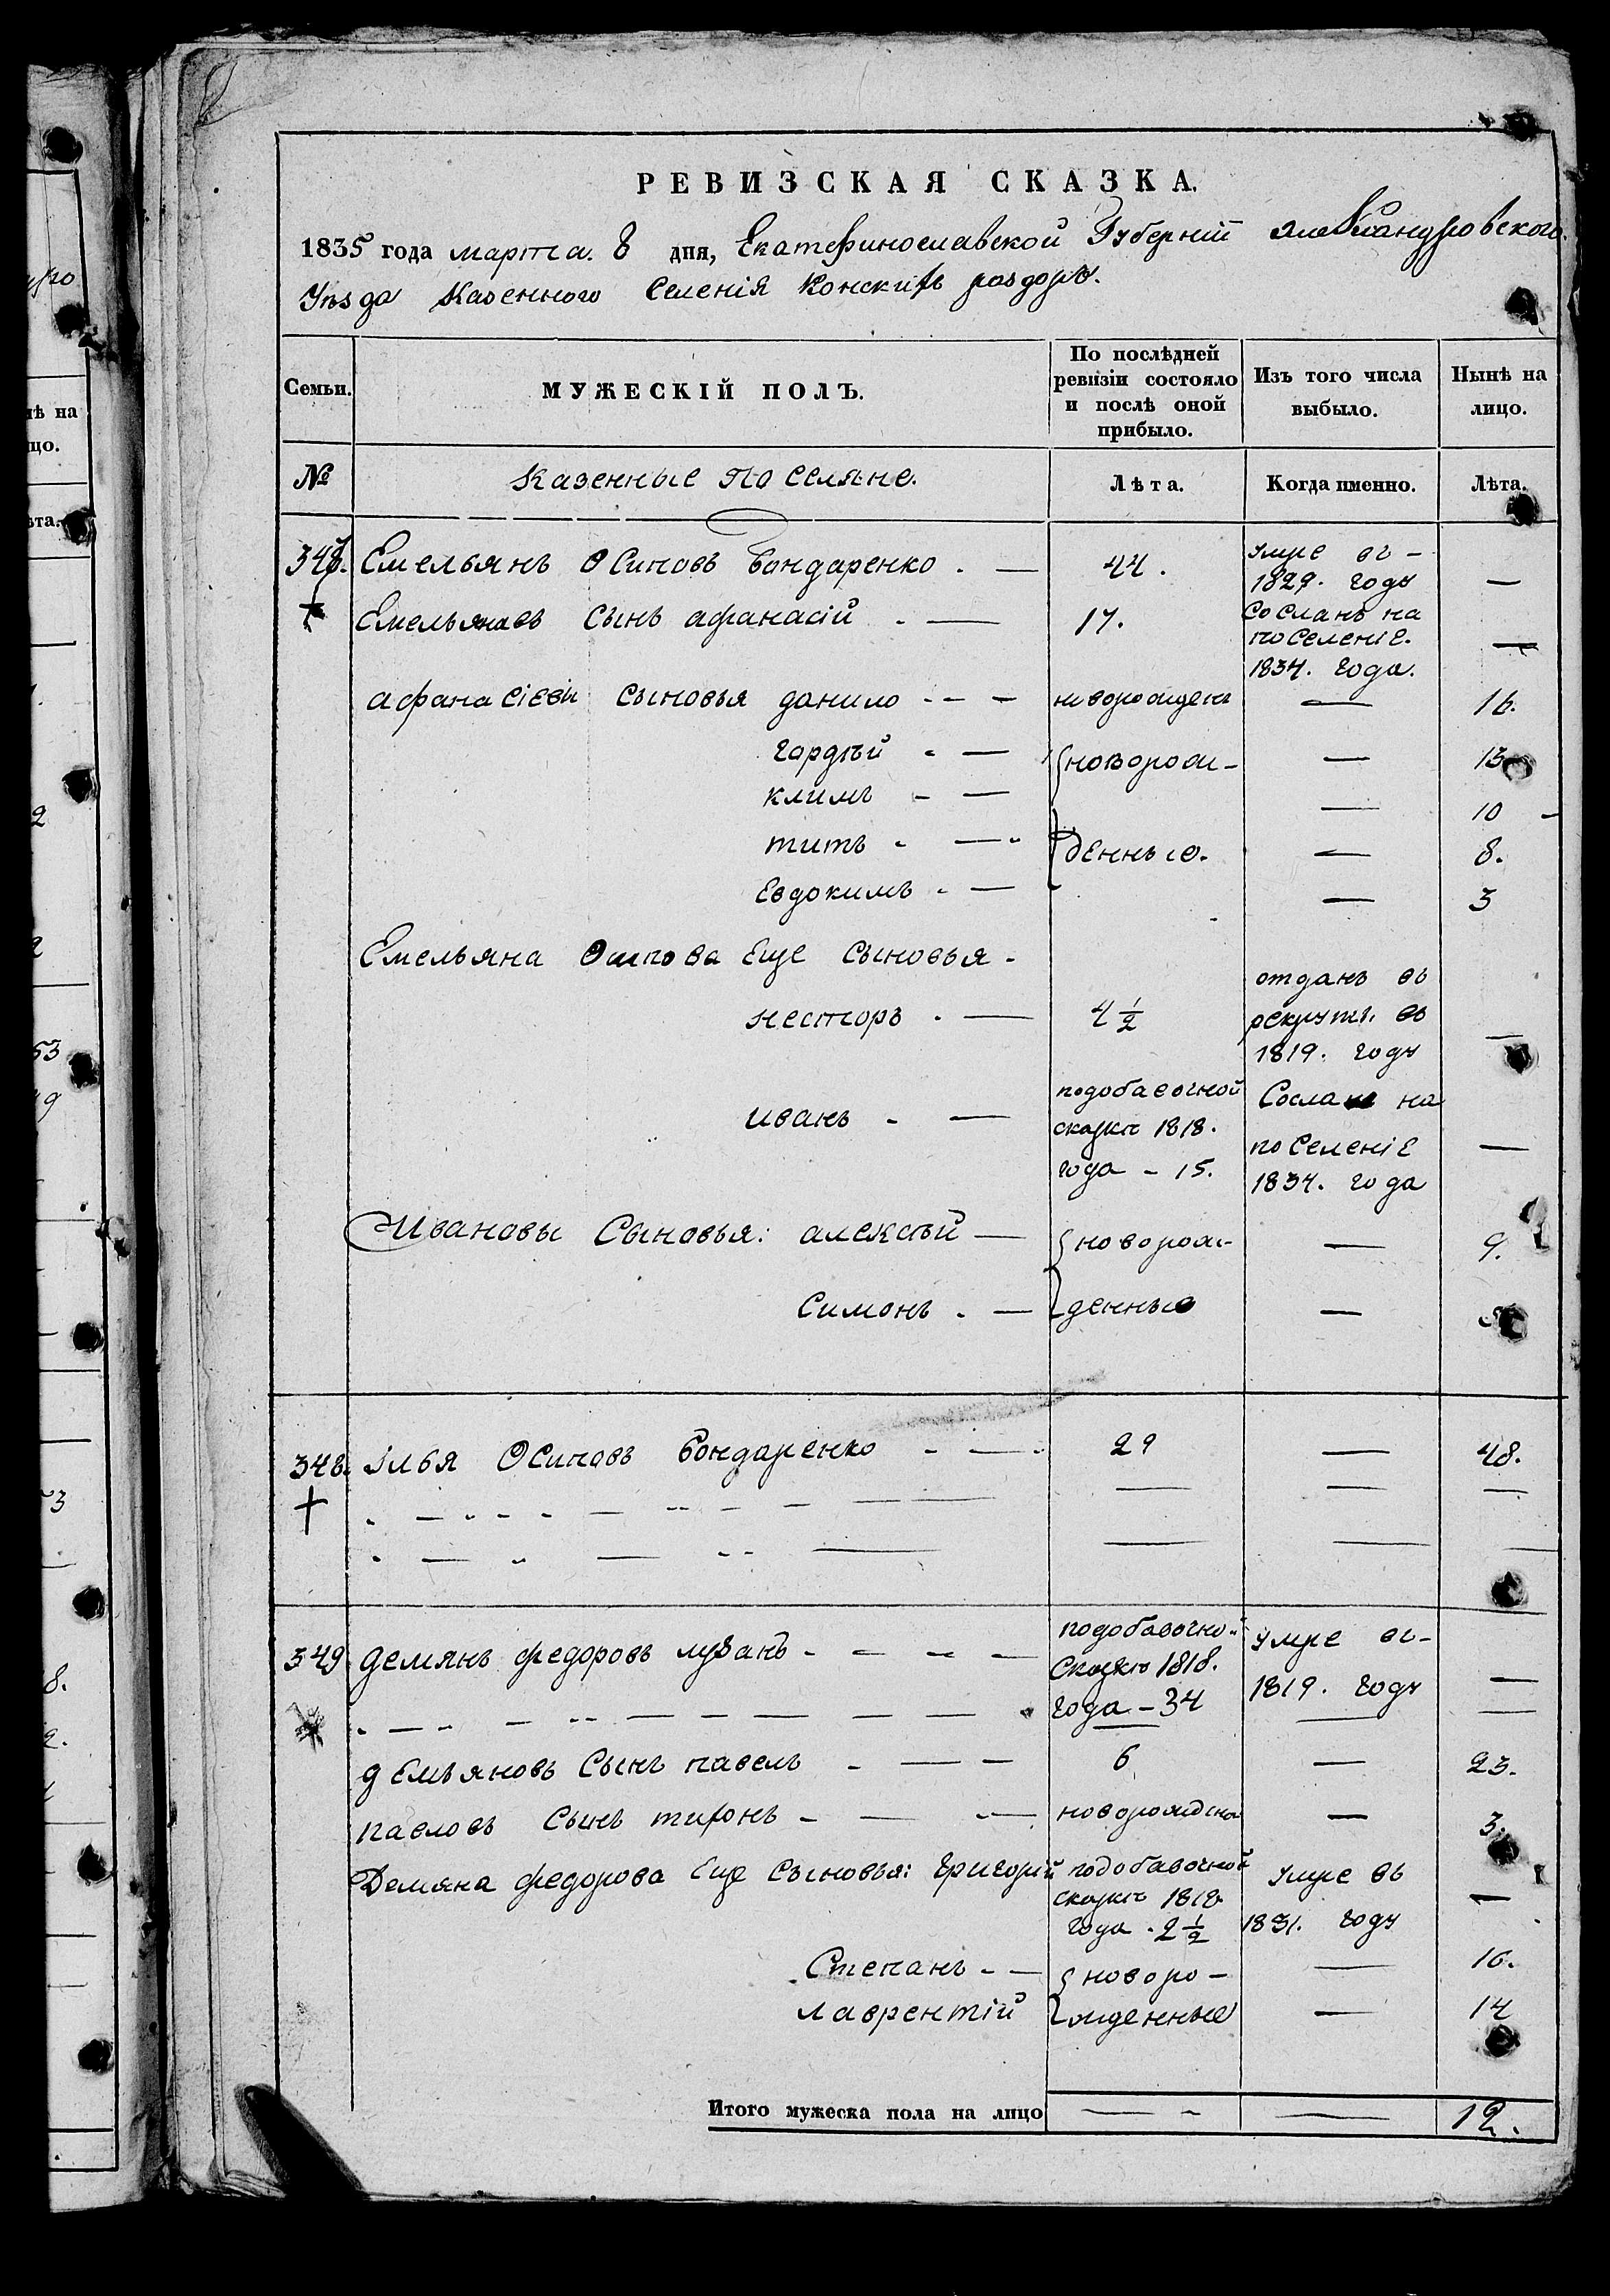 РЕВИЗСКАЯ СКАЗКА.
1835 года марта. 8 дня, Екатеринославской Губерніи Александровского
Уѣзда Казенного Селенія Конскихъ раздоръ.
Семьи. МУЖЕСКІЙ ПОЛЪ. По послѣдней ревизіи состояло и послѣ оной прибыло. Изъ того числа выбыло. Нынѣ на лицо.
№ Казенные Поселяне. Лѣта. Когда именно. Лѣта.
Емельянъ Осиповъ Бондаренко . — 44. умре въ — 1829. году —
Емельяновъ Сынъ афанасій . — 17. Сосланъ на поселеніе. 1834. Года. —
афанасіевы Сыновья данило - - — новорожденъ — 16.
гордѣй - — { новорож- — 13
климъ - — — 10
титъ - — { денные. — 8.
Евдокимъ - — — 3
Емельяна Осипова Еще Сыновья -
несторъ . — 4 1/2 отданъ въ рекруты. въ 1819. году —
иванъ - — подобавочной скаскѣ 1818. года - 15. Сосланъ на поселеніе 1834. года —
Ивановы Сыновья: алексѣй — { новорож- — 9.
Симонъ . — { денные —
348. Илья Осиповъ Бондаренко - — 29 — 48.
349 демянъ федоровъ лузанъ - — подобавочно- Скаскѣ 1818. года - 34 умре въ- 1819. году —
демьяновъ Сынъ павелъ - — — 6 — 23.
павловъ Сынъ тихонъ - — новорожденъ — 3.
Демяна федорова Еще Сыновья: григорій подобавочной скаскѣ 1818 года - 2 1/2 умре въ 1831. году —
Степанъ - — { новоро - — 16.
лаврентій { жденные — 14
Итого мужеска пола на лицо — - — 12.
нѣ на
лицо.
Лѣта.
53